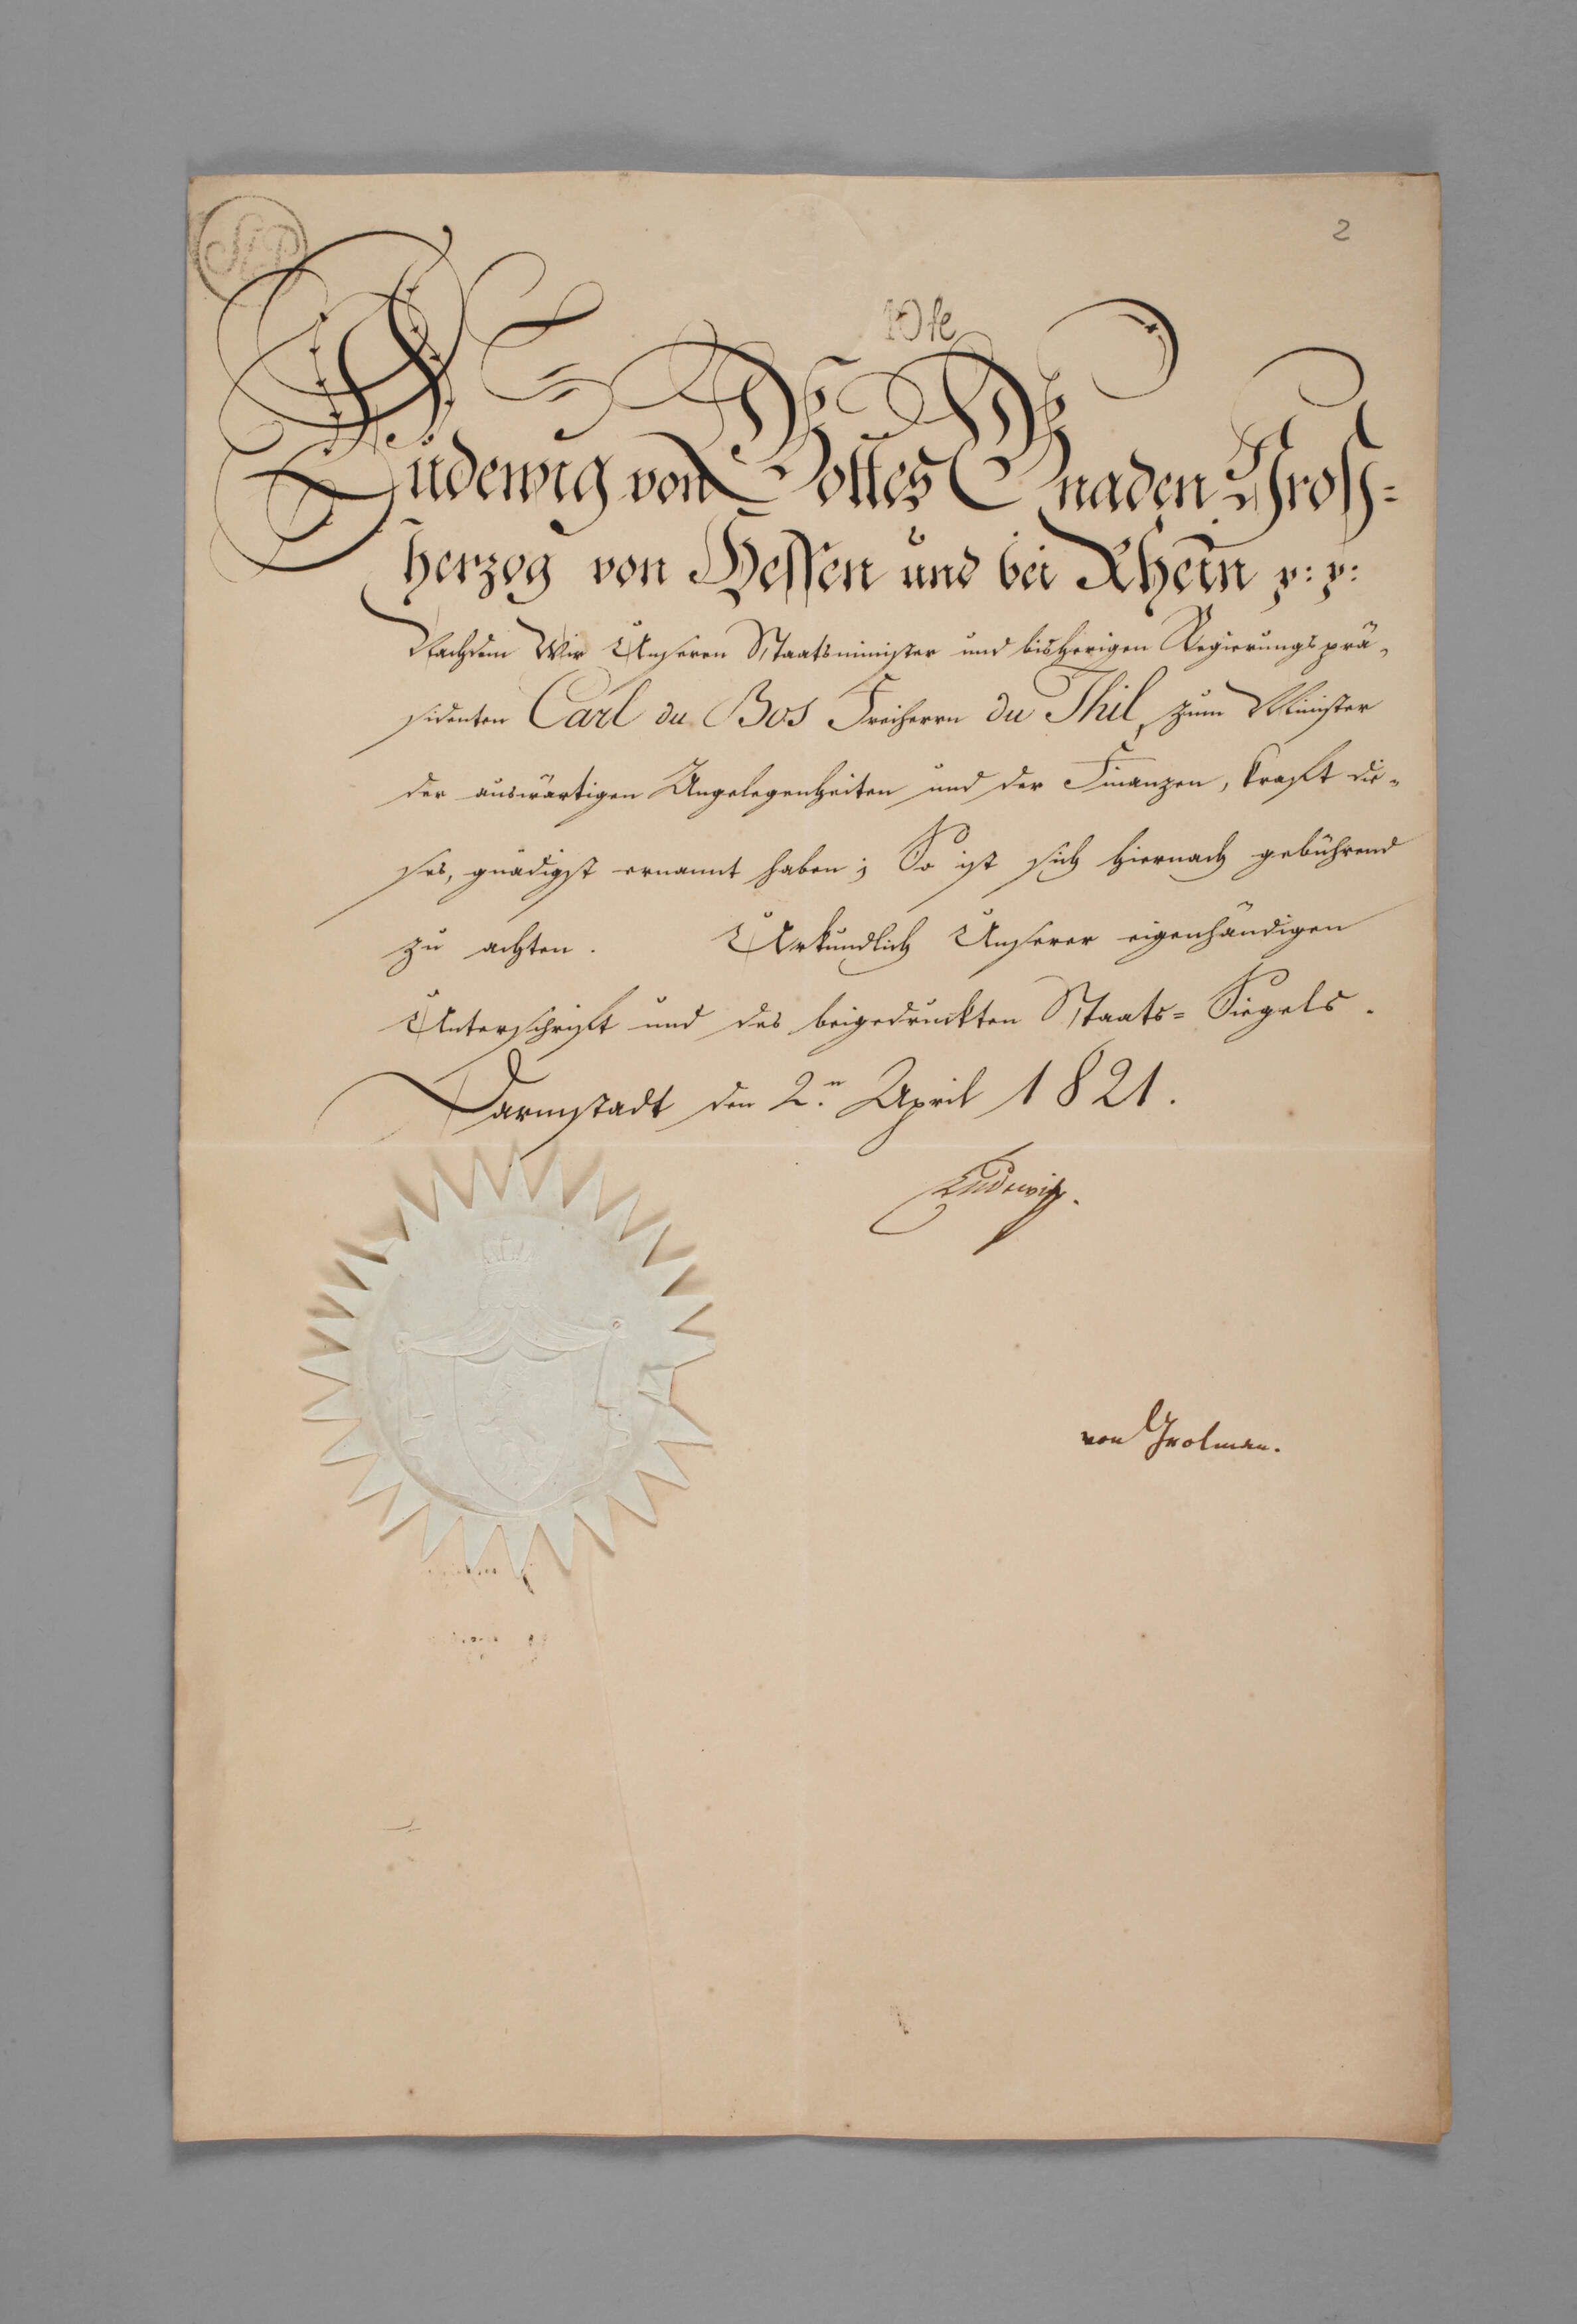 2
Ludewig von Gottes Gnaden Groß=
herzog von Hessen und bei Rhein p: p:
Nachdem Wir Unseren Staatsminister und bisherigen Regierungsprä-
sidenten Carl du Bos Freiherrn du Thil, zum Minister
der auswärtigen Angelegenheiten und der Finanzen, kraft die-
ses, gnädigst ernannt haben; So ist sich hiernach gebührend
zu achten. Urkundlich Unserer eigenhändigen
Unterschrift und des beigedruckten Staats= Siegels.
Darmstadt den 2.n April 1821.
Ludewig.
von Grolman.